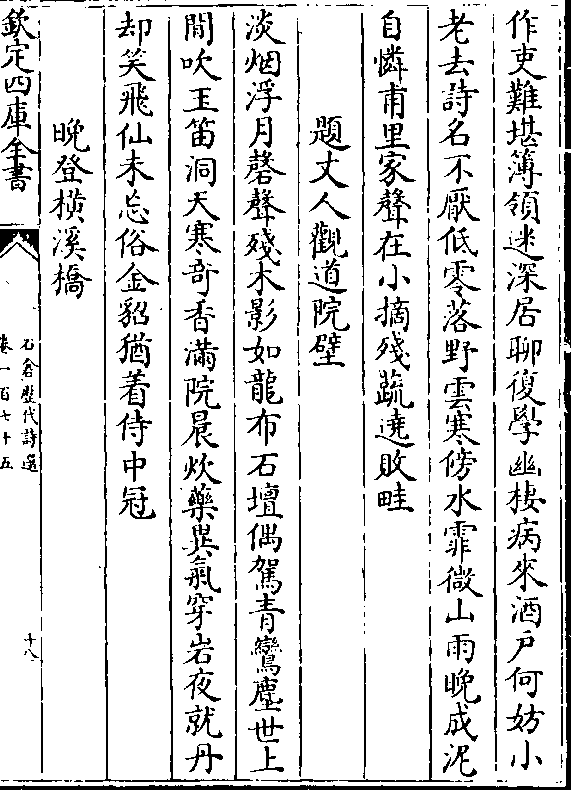 作吏難堪簿領迷深居聊復學幽棲病來酒戶何妨小
老去詩名不厭低零落野雲寒傍水霏微山雨晚成泥
自憐甫里家聲在小摘殘蔬遶敗畦
題丈人觀道院壁
淡烟浮月磬聲殘木影如龍布石壇偶駕青鸞塵世上
閒吹玉笛洞天寒奇香滿院晨炊藥異氣穿岩夜就丹
却笑飛仙未忘俗金貂猶着侍中冠
晚登橫溪橋
欽定四庫全書
石倉歷代詩選
卷一百七十五
十八